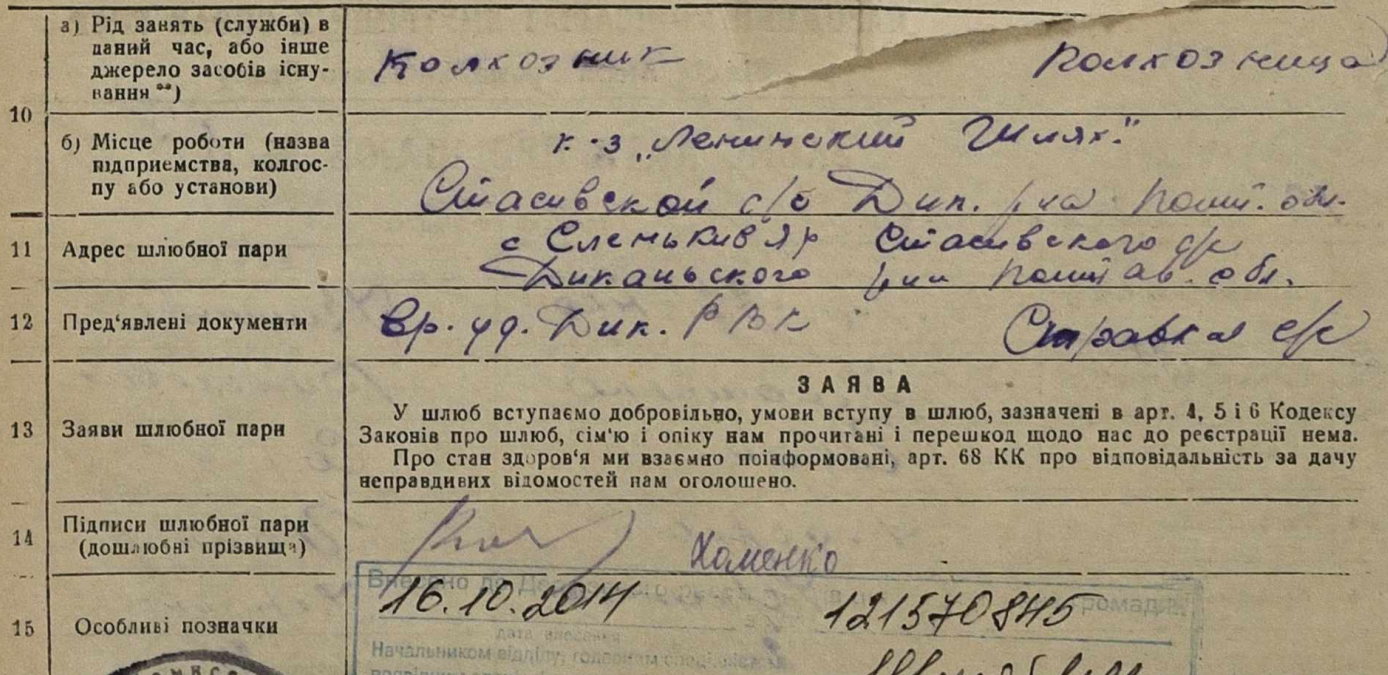 10
а) Рід занять (служби) в
даний час, або інше
джерело засобів існу-
вання **)
Колхозник Колхозница
б) Місце роботи (назва
підприємства, колгос-
пу або установи)
к-з „Ленинский Шлях."
Стасивской с/с Дик. р-на Полт. обл.
11 Адрес шлюбної пари
с Сленькив Яр Стасивского с/с
Диканьского р-на Полтав. обл.
12 Пред'явлені документи
Вр. уд. Дик. РВК Справка с/с
13 Заяви шлюбної пари
ЗАЯВА
У шлюб вступаємо добровільно, умови вступу в шлюб, зазначені в арт. 4, 5 і 6 Кодексу
Законів про шлюб, сім'ю і опіку нам прочитані і перешкод щодо нас до реєстрації нема.
Про стан здоров'я ми взаємно поінформовані, арт. 68 КК про відповідальність за дачу
неправдивих відомостей нам оголошено.
14 Підписи шлюбної пари
(дошлюбні прізвища)
Хоменко
15 Особливі позначки
Внесено до громадян
16.10.2014 121570845
дата внесення
Начальником відділу, головним спеціалістом